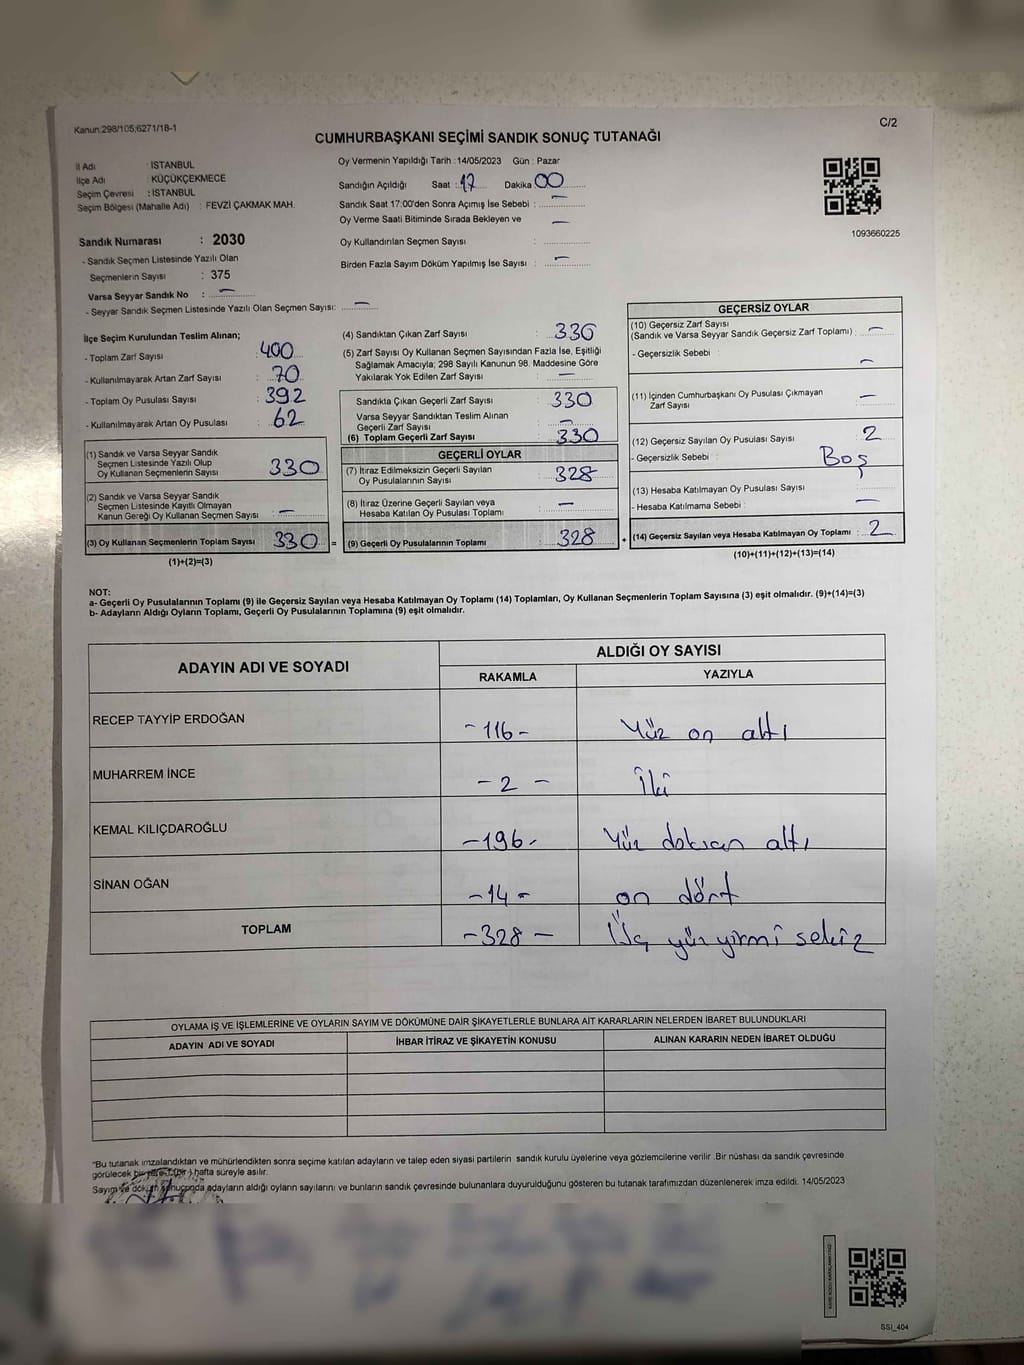 Kanun:298/105;6271/18-1
C/2
CUMHURBAŞKANI SEÇİMİ SANDIK SONUÇ TUTANAĞI
İl Adı : İSTANBUL
İlçe Adı : KÜÇÜKÇEKMECE
Seçim Çevresi : İSTANBUL
Seçim Bölgesi (Mahalle Adı) : FEVZİ ÇAKMAK MAH.
Sandık Numarası : 2030
- Sandık Seçmen Listesinde Yazılı Olan
Seçmenlerin Sayısı : 375
Varsa Seyyar Sandık No : —
- Seyyar Sandık Seçmen Listesinde Yazılı Olan Seçmen Sayısı: —
Oy Vermenin Yapıldığı Tarih :14/05/2023 Gün : Pazar
Sandığın Açıldığı Saat : 17 Dakika 00
Sandık Saat 17:00'den Sonra Açımış İse Sebebi : —
Oy Verme Saati Bitiminde Sırada Bekleyen ve —
Oy Kullandırılan Seçmen Sayısı :
Birden Fazla Sayım Döküm Yapılmış İse Sayısı : —
1093660225
İlçe Seçim Kurulundan Teslim Alınan;
- Toplam Zarf Sayısı : 400
- Kullanılmayarak Artan Zarf Sayısı : 70
- Toplam Oy Pusulası Sayısı : 392
- Kullanılmayarak Artan Oy Pusulası : 62
(1) Sandık ve Varsa Seyyar Sandık
Seçmen Listesinde Yazılı Olup
Oy Kullanan Seçmenlerin Sayısı : 330
(2) Sandık ve Varsa Seyyar Sandık
Seçmen Listesinde Kayıtlı Olmayan
Kanun Gereği Oy Kullanan Seçmen Sayısı : —
(3) Oy Kullanan Seçmenlerin Toplam Sayısı : 330 =
(1)+(2)=(3)
(4) Sandıktan Çıkan Zarf Sayısı : 330
(5) Zarf Sayısı Oy Kullanan Seçmen Sayısından Fazla İse, Eşitliği
Sağlamak Amacıyla; 298 Sayılı Kanunun 98. Maddesine Göre
Yakılarak Yok Edilen Zarf Sayısı : —
Sandıkta Çıkan Geçerli Zarf Sayısı : 330
Varsa Seyyar Sandıktan Teslim Alınan
Geçerli Zarf Sayısı : —
(6) Toplam Geçerli Zarf Sayısı : 330
GEÇERLİ OYLAR
(7) İtiraz Edilmeksizin Geçerli Sayılan
Oy Pusulalarının Sayısı : 328
(8) İtiraz Üzerine Geçerli Sayılan veya
Hesaba Katılan Oy Pusulası Toplamı : —
(9) Geçerli Oy Pusulalarının Toplamı : 328 +
GEÇERSİZ OYLAR
(10) Geçersiz Zarf Sayısı
(Sandık ve Varsa Seyyar Sandık Geçersiz Zarf Toplamı) : —
- Geçersizlik Sebebi : —
(11) İçinden Cumhurbaşkanı Oy Pusulası Çıkmayan
Zarf Sayısı : —
(12) Geçersiz Sayılan Oy Pusulası Sayısı : 2
- Geçersizlik Sebebi : Boş
(13) Hesaba Katılmayan Oy Pusulası Sayısı :
- Hesaba Katılmama Sebebi : —
(14) Geçersiz Sayılan veya Hesaba Katılmayan Oy Toplamı : 2
(10)+(11)+(12)+(13)=(14)
NOT:
a- Geçerli Oy Pusulalarının Toplamı (9) ile Geçersiz Sayılan veya Hesaba Katılmayan Oy Toplamı (14) Toplamları, Oy Kullanan Seçmenlerin Toplam Sayısına (3) eşit olmalıdır. (9)+(14)=(3)
b- Adayların Aldığı Oyların Toplamı, Geçerli Oy Pusulalarının Toplamına (9) eşit olmalıdır.
ADAYIN ADI VE SOYADI
ALDIĞI OY SAYISI
RAKAMLA YAZIYLA
RECEP TAYYİP ERDOĞAN -116- Yüz on altı
MUHARREM İNCE - 2 - İki
KEMAL KILIÇDAROĞLU -196- Yüz doksan altı
SİNAN OĞAN -14- on dört
TOPLAM -328- Üç yüz yirmi sekiz
OYLAMA İŞ VE İŞLEMLERİNE VE OYLARIN SAYIM VE DÖKÜMÜNE DAİR ŞİKAYETLERLE BUNLARA AİT KARARLARIN NELERDEN İBARET BULUNDUKLARI
ADAYIN ADI VE SOYADI İHBAR İTİRAZ VE ŞİKAYETİN KONUSU ALINAN KARARIN NEDEN İBARET OLDUĞU
"Bu tutanak imzalandıktan ve mühürlendikten sonra seçime katılan adayların ve talep eden siyasi partilerin sandık kurulu üyelerine veya gözlemcilerine verilir .Bir nüshası da sandık çevresinde
görülecek bir yere 1 (bir ) hafta süreyle asılır.
Sayım ve döküm sonucunda adayların aldığı oyların sayılarını ve bunların sandık çevresinde bulunanlara duyurulduğunu gösteren bu tutanak tarafımızdan düzenlenerek imza edildi. 14/05/2023
SSI_404